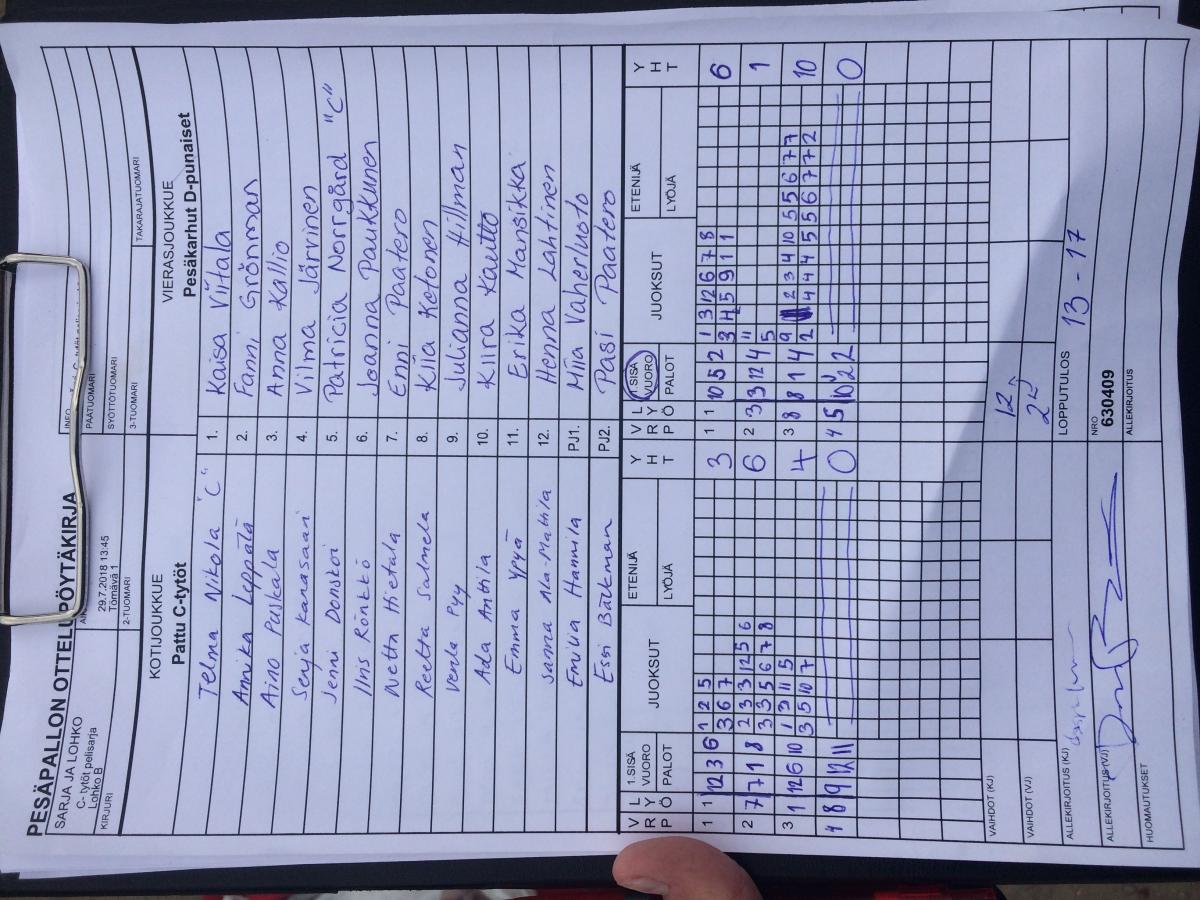 PESÄPALLON OTTELUPÖYTÄKIRJA
SARJA JA LOHKO
C- tytöt pelisarja
Lohko B
29.7.2018 13:45
Törnävä 1
INFO
KIRJURI
2-TUOMARI
PÄÄTUOMARI
SYÖTTÖTUOMARI
3-TUOMARI
TAKARAJATUOMARI
KOTIJOUKKUE
Pattu C-tytöt
VIERASJOUKKUE
Pesäkarhut D-punaiset
Telma Nikola "C" 1. Kaisa Viitala
Annika Leppälä 2. Fanni Grönman
Aino Puskala 3. Anna Kallio
Senja Kanasaari 4. Vilma Järvinen
Jenni Donskoi 5. Patricia Norrgård "C"
Iiris Rönkkö 6. Joanna Paukkunen
Netta Hietala 7. Enni Paatero
Reetta Salmela 8. Kiia Ketonen
Venla Pyy 9. Julianna Hillman
Ada Anttila 10. Kiira Kautto
Emma Ypyä 11. Erika Mansikka
Sanna Ala-Mattila 12. Henna Lahtinen
Emilia Hannila PJ1. Miia Vaherluoto
Essi Bäckman PJ2. Pasi Paatero
V R P L Y Ö 1.SISÄ VUORO PALOT JUOKSUT ETENIJÄ LYÖJÄ Y H T V R P L Y Ö 1.SISÄ VUORO PALOT JUOKSUT ETENIJÄ LYÖJÄ Y H T
1 1 12 3 6 1 2 5 3 1 1 10 5 2 1 3 12 6 7 8 6
3 6 7 3 4 5 9 1 1
2 7 7 1 8 2 3 3 12 5 6 6 2 3 3 12 4 11 1
3 3 5 6 7 8 5
3 1 12 6 10 1 3 11 5 4 3 8 8 1 4 9 2 3 4 10 5 5 6 7 7 10
3 5 10 7 2 4 4 4 5 5 6 7 7 2
4 8 9 12 11 0 4 5 10 2 2 0
VAIHDOT (KJ) 12
VAIHDOT (VJ) 25
ALLEKIRJOITUS (KJ)
LOPPUTULOS 13 - 17
ALLEKIRJOITUS (VJ)
NRO
630409
HUOMAUTUKSET
ALLEKIRJOITUS